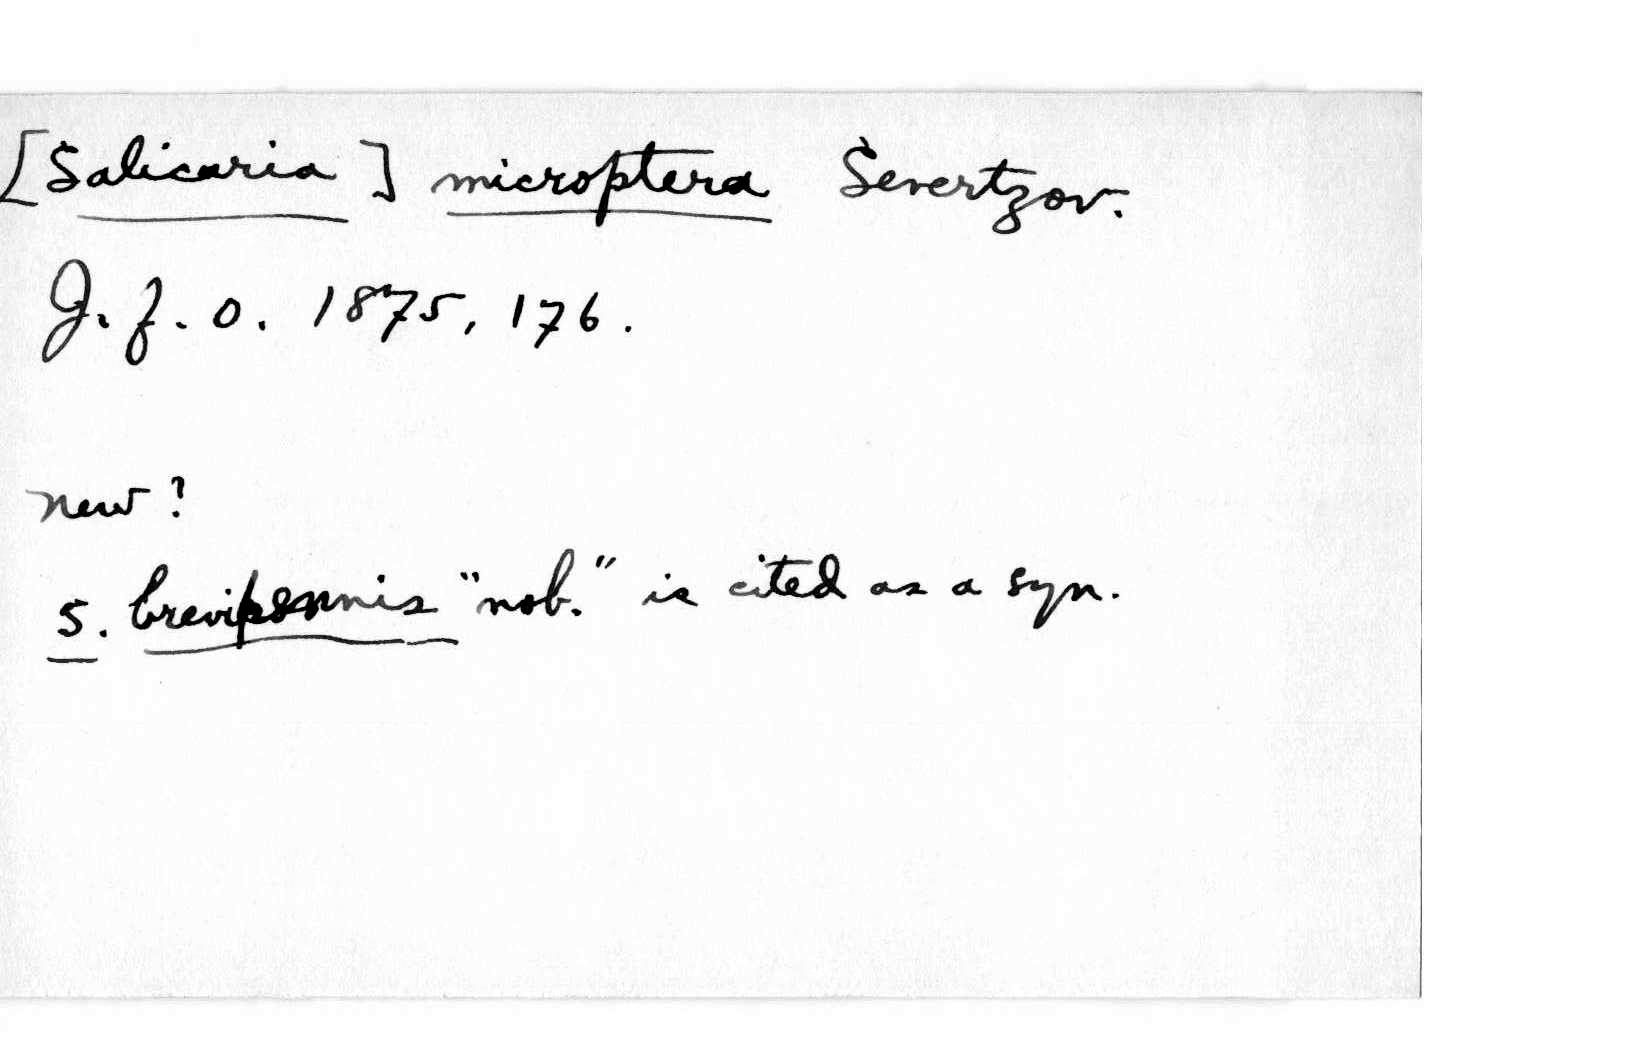 [Salicaria] microptera Severtzov.
J. f. O. 1875, 176.
new?
S. brevipennis "nob." is cited as a syn.